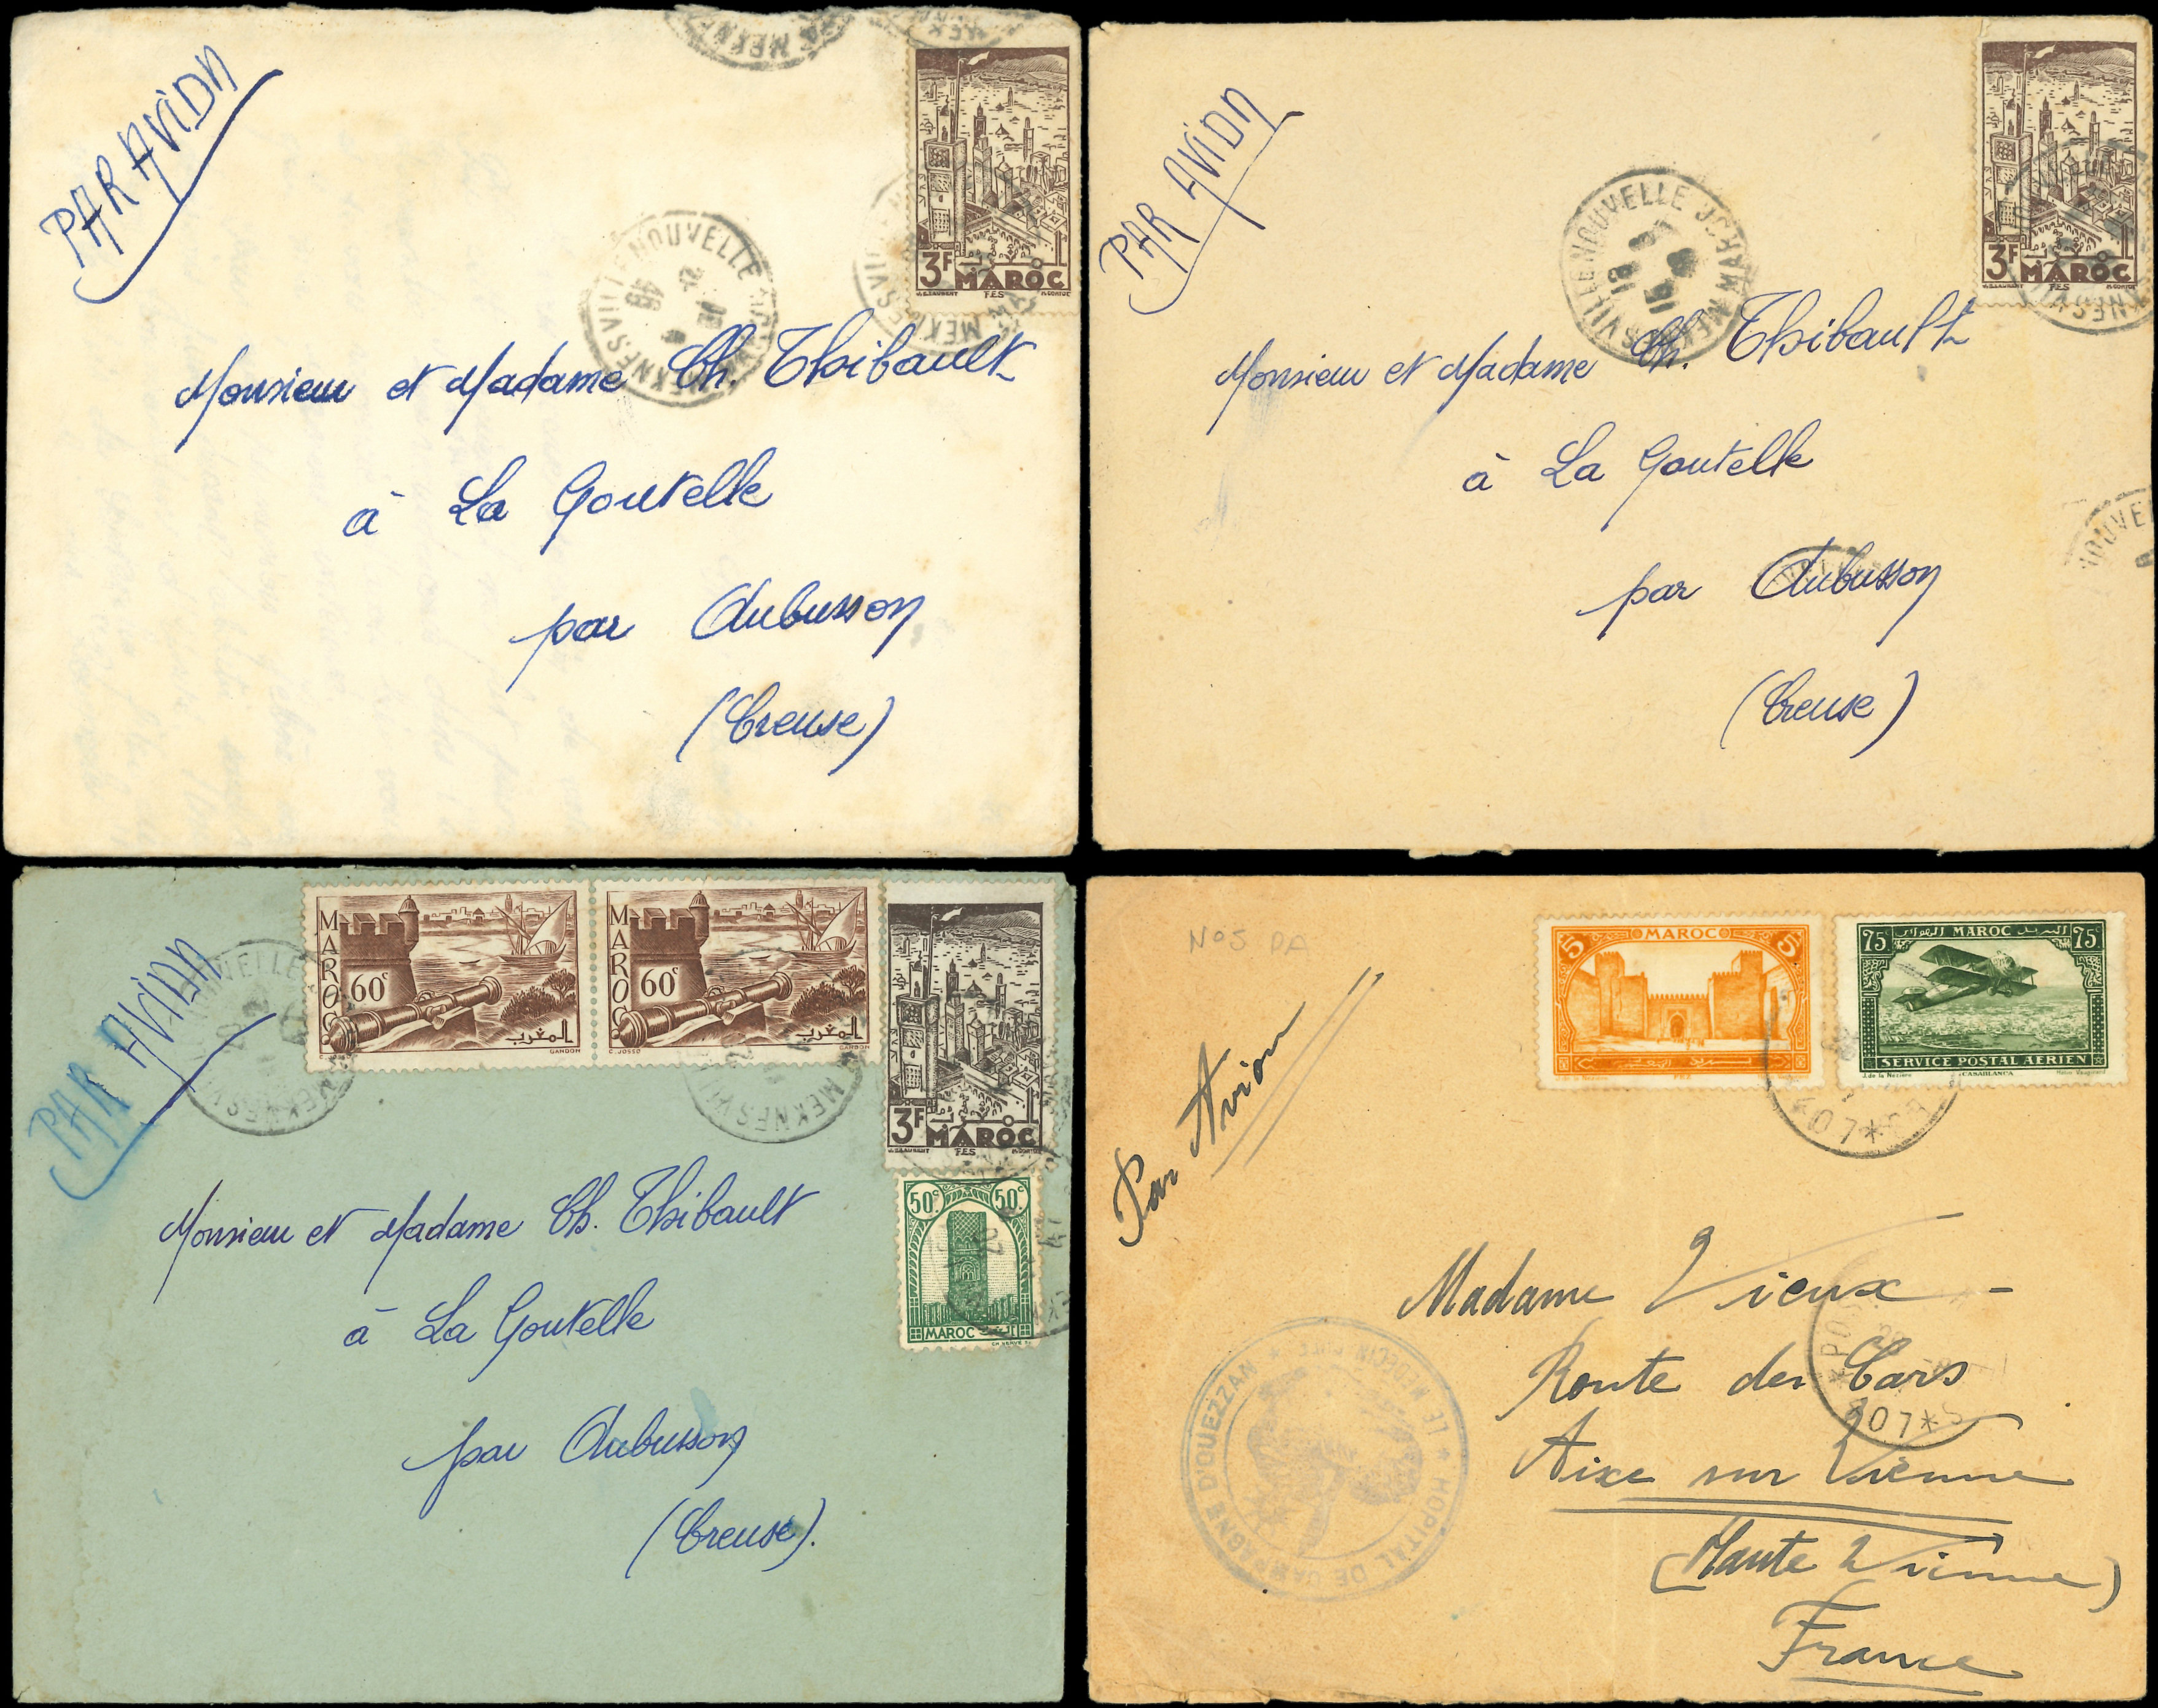 PAR AVION
3F MAROC
FES
MEKNES VILLE NOUVELLE
46
Monsieur et Madame Ch. Thibault
à La Goutelle
par Aubusson
(Creuse)
PAR AVION
3F MAROC
FES
MEKNES VILLE NOUVELLE MAROC
Monsieur et Madame Ch. Thibault
à La Goutelle
par Aubusson
(Creuse)
PAR AVION
MAROC
60c
المغرب
C. JOSSO GANDON
MAROC
60c
المغرب
C. JOSSO GANDON
3F MAROC
FES
50c 50c
MAROC
MEKNES
Monsieur et Madame Ch. Thibault
à La Goutelle
par Aubusson
(Creuse).
N°5 PA
Par Avion
5 MAROC 5
FEZ
75c MAROC 75c
SERVICE POSTAL AERIEN
CASABLANCA
407
HOPITAL DE CAMPAGNE D'OUEZZAN
LE MEDECIN CHEF
Madame Vieux
Route des Cars
Aixe sur Vienne
(Haute Vienne)
France